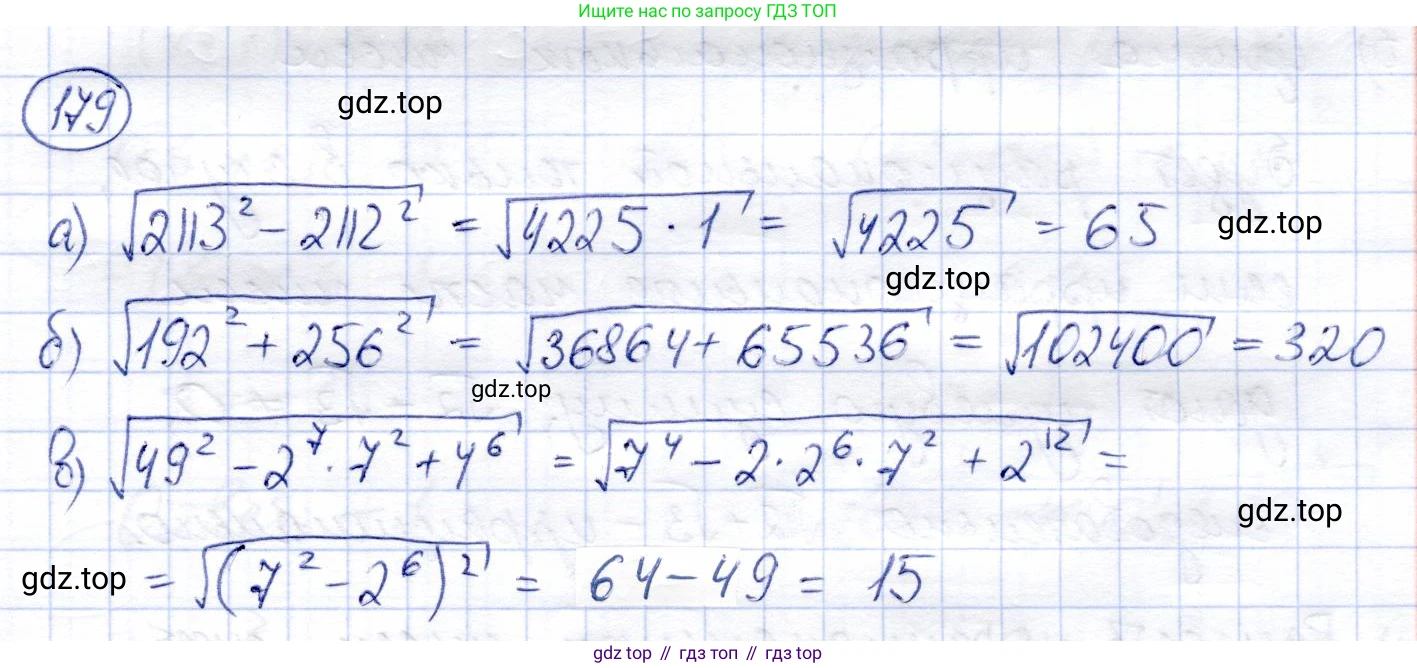 Ищите нас по запросу ГДЗ ТОП
179
gdz.top
а) √(2113² - 2112²) = √(4225 · 1) = √4225 = 65
gdz.top
gdz.top
б) √(192² + 256²) = √(36864 + 65536) = √102400 = 320
gdz.top
в) √(49² - 2⁷ · 7² + 4⁶) = √(7⁴ - 2 · 2⁶ · 7² + 2¹²) =
gdz.top
gdz.top
= √((7² - 2⁶)²) = 64 - 49 = 15
gdz.top // гдз топ // gdz.top